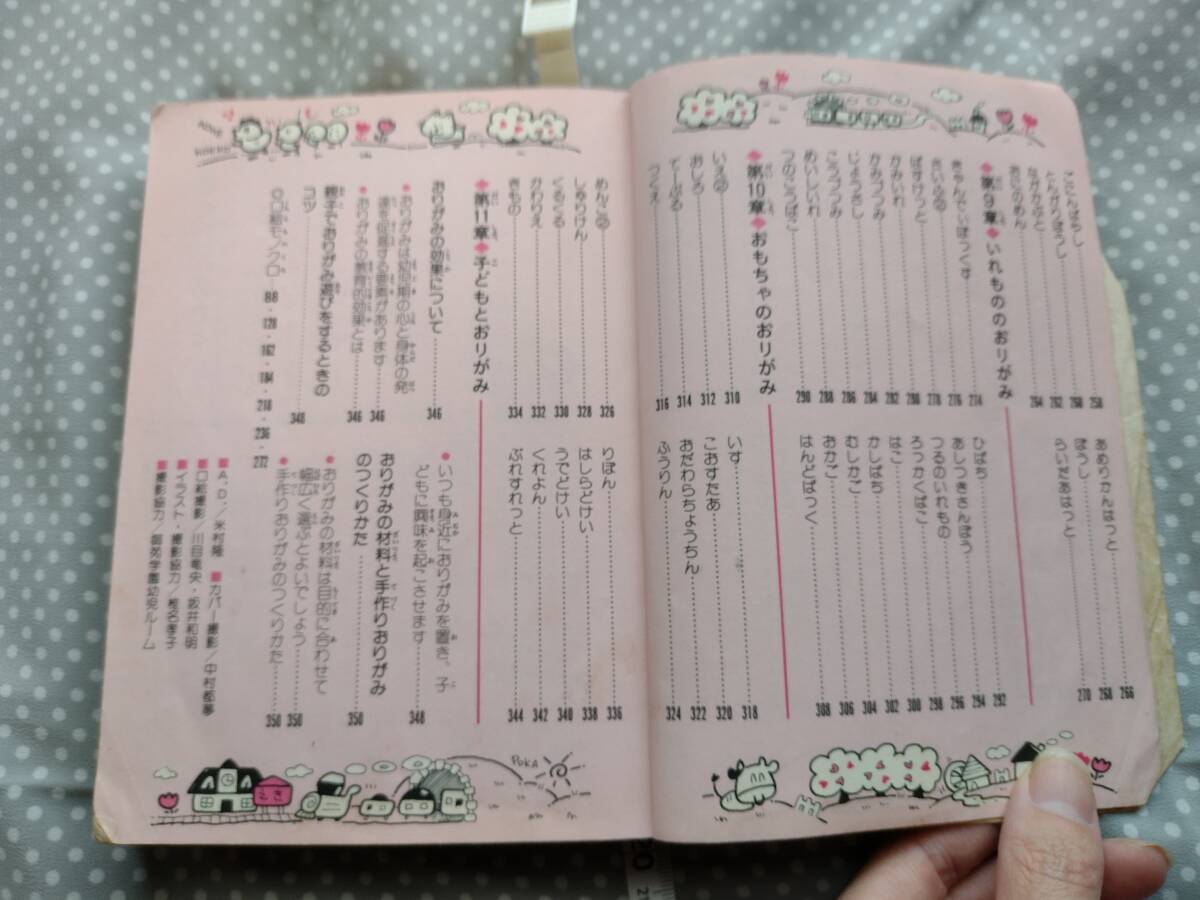 とんがりぼうし 260
ながかぶと 262
おにのめん 264
あめりかんはっと 266
ぼうし 268
らいだあはっと 270
◆第9章◆いれもののおりがみ
きゃんでぃぼっくす 274
さいふ② 276
ばすけっと 278
かみいれ 280
かみづつみ 282
じょうさし 284
こうづつみ 286
めいしいれ 288
つのこうばこ 290
ひばち 292
あしつきさんぼう 294
つるのいれもの 296
ろっかくばこ 298
はこ 300
かしばち 302
むしかご 304
おかご 306
はんどばっぐ 308
◆第10章◆おもちゃのおりがみ
いえ② 310
おしろ 312
てーぶる 314
つくえ 316
いす 318
こおすたあ 320
おだわらちょうちん 322
ふうりん 324
めんこ② 326
しゅりけん 328
くるくる 330
かわりえ 332
きもの 334
りぼん 336
はしらどけい 338
うでどけい 340
くれよん 342
ぶれすれっと 344
◆第11章◆子どもとおりがみ
おりがみの効果について 346
●おりがみは幼児期の心と身体の発
達を促進する要素があります 346
●おりがみの教育的効果とは 346
親子でおりがみ遊びをするときの
コツ 348
●いつも身近におりがみを置き、子
どもに興味を起こさせます 348
おりがみの材料と手作りおりがみ
のつくりかた 350
●おりがみの材料は目的に合わせて
幅広く選ぶとよいでしょう 350
●手作りおりがみのつくりかた 350
○口絵モノクロ 88・128・162・184・218・236・272
■A.D.／米村隆 ■カバー撮影／中村都夢
■口絵撮影／川目竜央・坂井和明
■イラスト・撮影協力／椎名孝子
■撮影協力／御苑学園幼児ルーム
えき
POKA